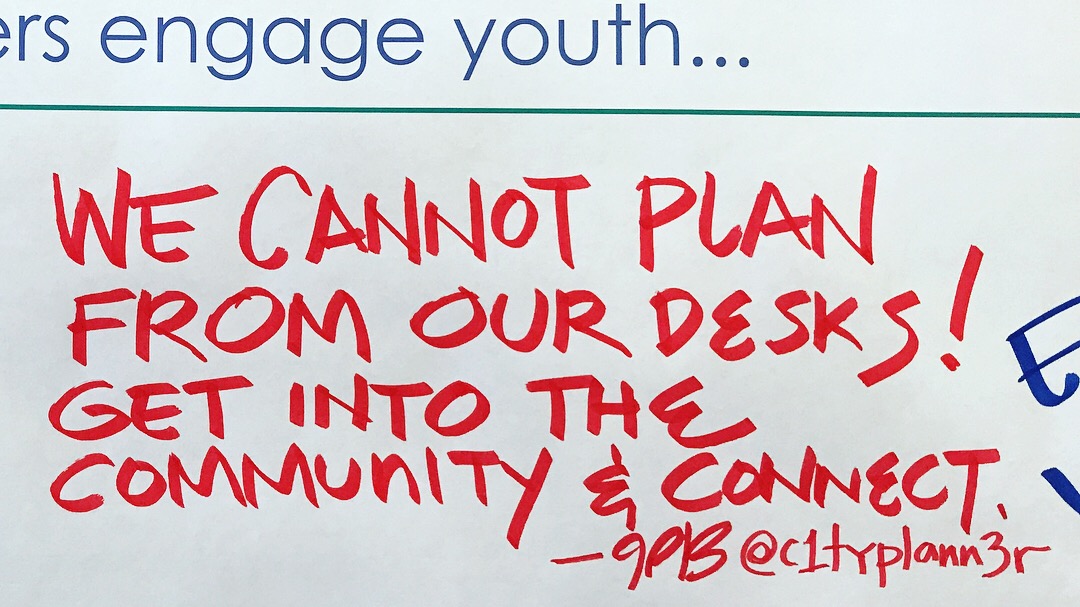 ers engage youth...
WE CANNOT PLAN
FROM OUR DESKS!
GET INTO THE
COMMUNITY & CONNECT.
@c1typlann3r